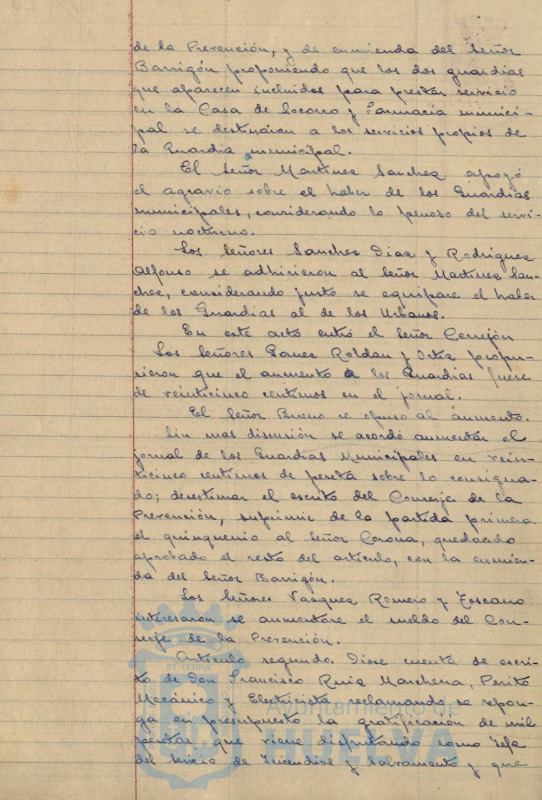 de la Prevención, y de enmienda del Señor
Barrigón proponiendo que los dos guardias
que aparecen incluidos para prestar servicio
en la Casa de Socorro y Farmacia munici-
pal se destinaran a los servicios propios de
la Guardia municipal.
El Señor Martinez Sanchez apoyó
el agravio sobre el haber de los Guardias
municipales, considerando lo penoso del servi-
cio nocturno.
Los Señores Sanchez Diaz y Rodriguez
Alfonso se adhirieron al Señor Martinez San-
chez, considerando justo se equipare el haber
de los Guardias al de los Urbanos.
En este acto entró el Señor Cerrejón
Los Señores Gomez Roldan y Ortiz propu-
sieron que el aumento a los Guardias fuese
de veinticinco centimos en el jornal.
El Señor Bueno se opuso al aumento.
Sin mas discusión se acordó aumentar el
jornal de los Guardias Municipales en vein-
ticinco centimos de peseta sobre lo consigna-
do; desestimar el escrito del Conserje de la
Prevención, suprimir de la partida primera
el quinquenio al Señor Corona, quedando
aprobado el resto del artículo, con la enmien-
da del Señor Barrigón.
Los Señores Vazquez Romero y Toscano
interesaron se aumentare el sueldo del Con-
serje de la Prevención.
Artículo segundo. Diose cuenta de escri-
to de Don Francisco Ruiz Marchena, Perito
Mecánico y Electricista reclamando se repon-
ga en presupuesto la gratificación de mil
pesetas que viene disfrutando como Jefe
del Servicio de Incendios y Salvamento y que
ET TERRA
Ayuntamiento de
HUELVA